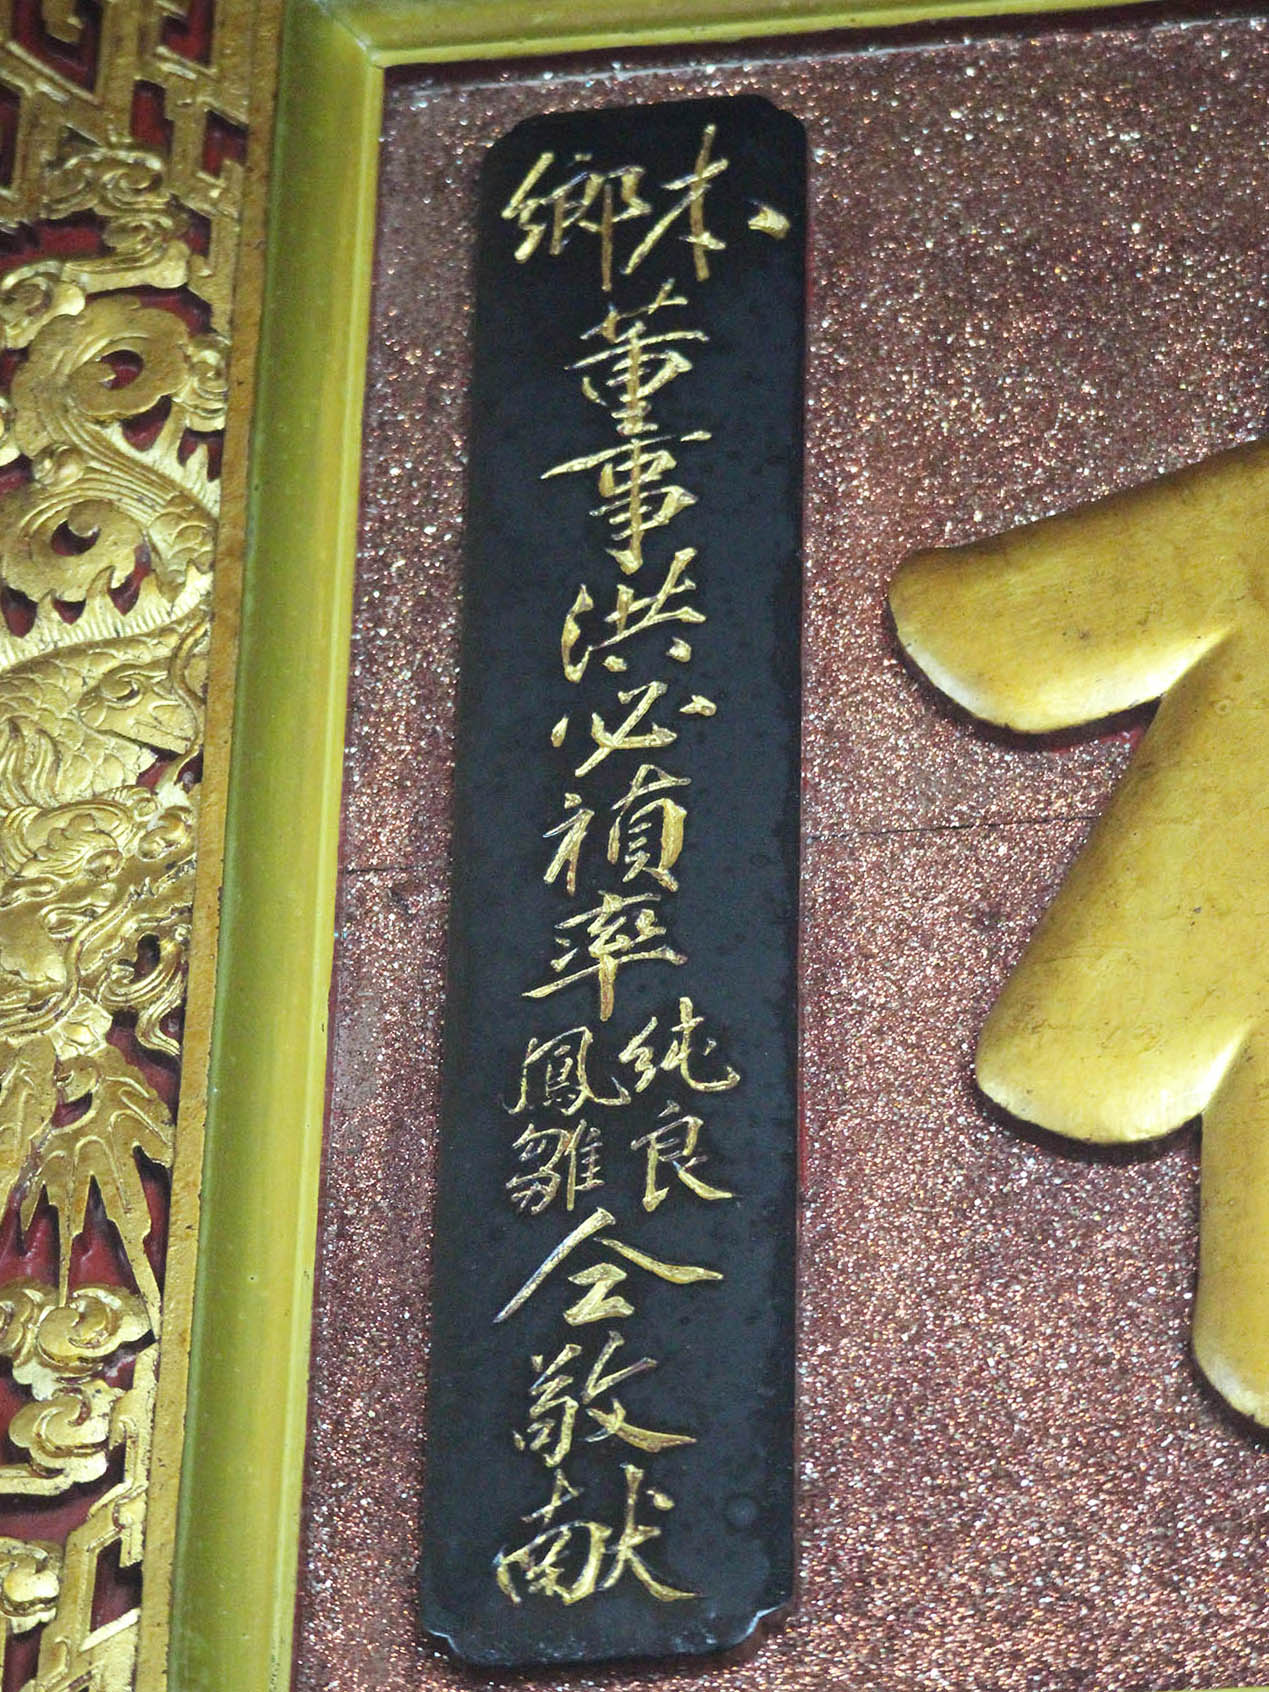 本鄉董事洪必禎率純良鳳雛仝敬献